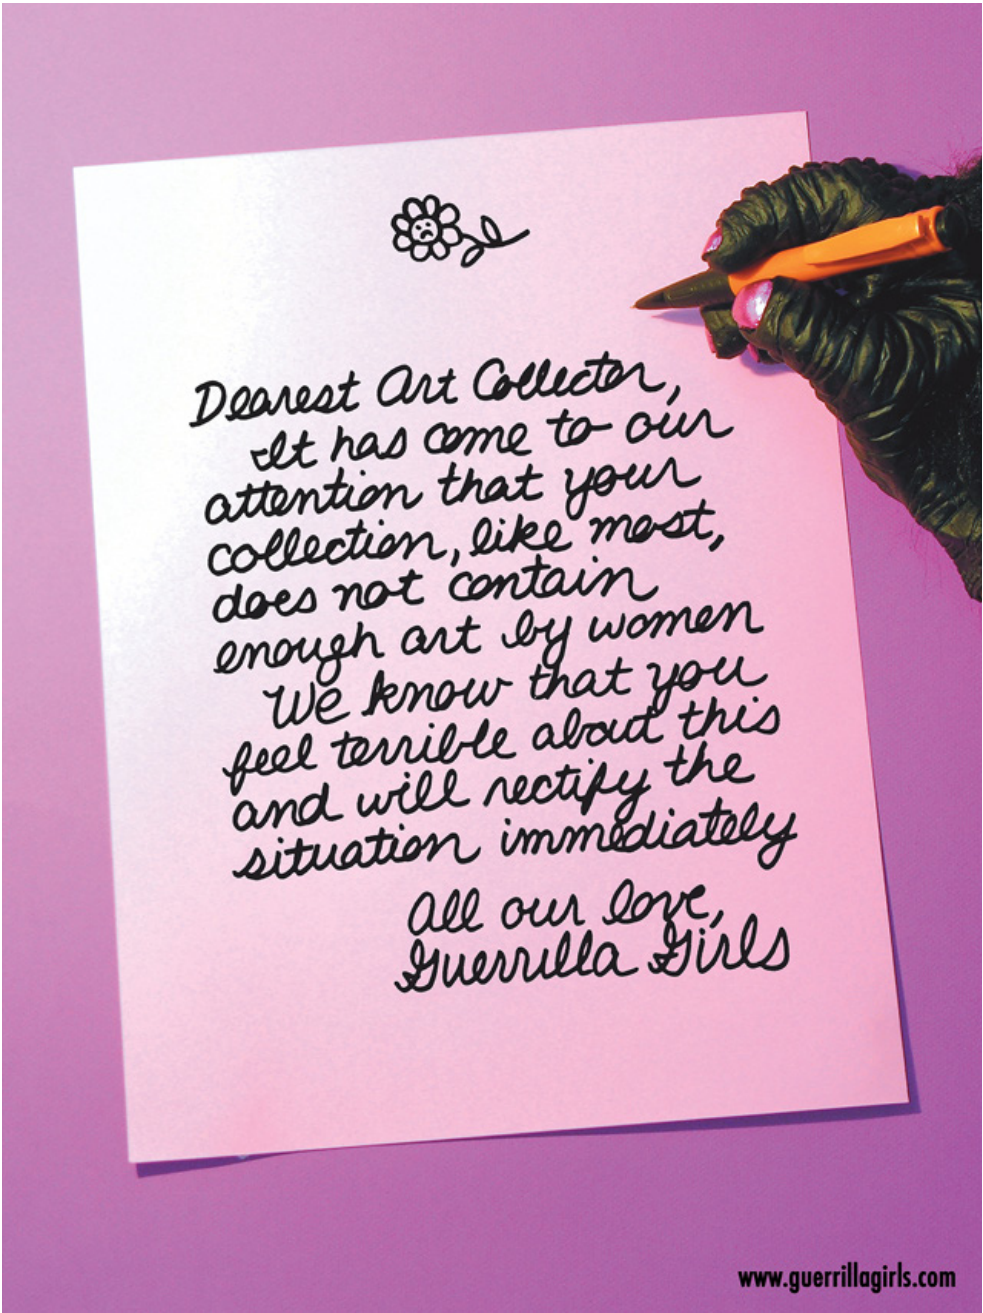 Dearest Art Collector,
It has come to our
attention that your
collection, like most,
does not contain
enough art by women
We know that you
feel terrible about this
and will rectify the
situation immediately
All our love,
Guerrilla Girls
www.guerrillagirls.com